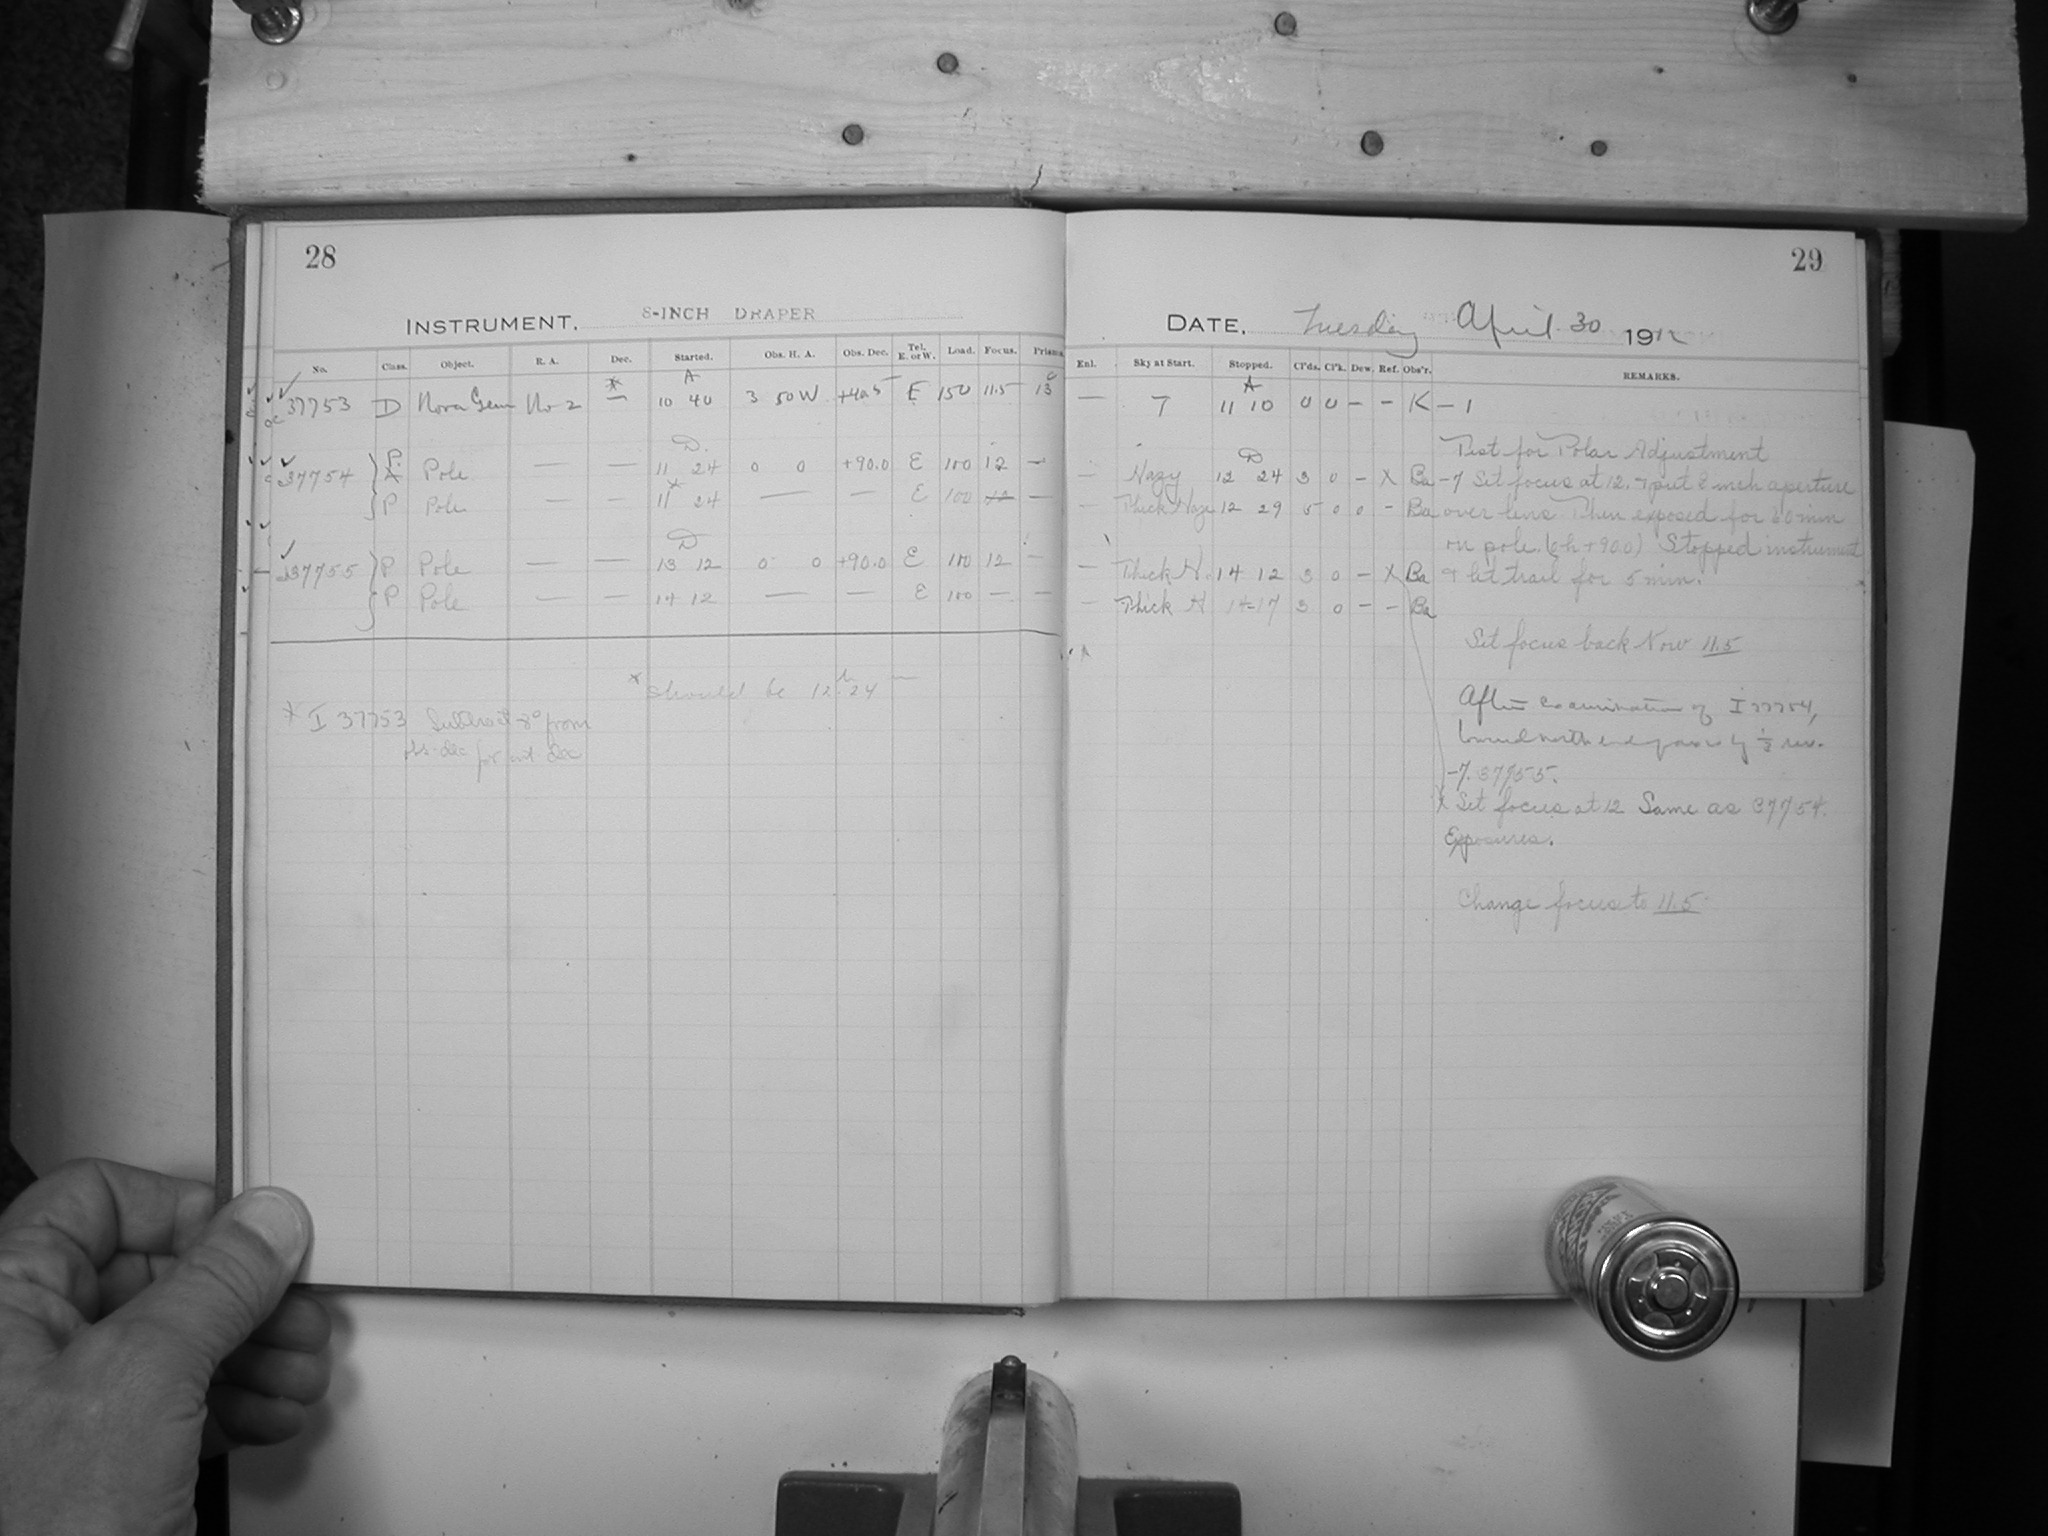 28
INSTRUMENT. 8-INCH DRAPER
No. Class. Object. R. A. Dec. Started. Obs. H. A. Obs. Dec. Tel. E. or W. Load. Focus. Prisms.
37753 D Nova Gem No 2 * — A 10 40 3 50 W E 150 11.5 13
37754 P Pole — — D. 11 24 0 0 +90.0 E 100 12 —
P Pole — — 11 24 — — E 100 12 —
37755 P Pole — — D 13 12 0 0 +90.0 E 100 12 —
P Pole — — 14 12 — — E 100 — —
* should be 12h 24
* I 37753 Subtract 8° from
obs. dec for
29
DATE. Tuesday April 30 1912
Enl. Sky at Start. Stopped. Cl'ds. Cl'k. Dew. Ref. Obs'r. REMARKS.
— 7 A 11 10 0 0 — — K — 1
Test for Polar Adjustment
— Hazy D 12 24 3 0 — X Ba — 7 Set focus at 12. put 2 inch aperture
— Thick Haze 12 29 5 0 0 — Ba over lens Then exposed for 60 min
on pole. (6h +90.0) Stopped instrument
— Thick H. 14 12 3 0 — X Ba & let trail for 5 min.
— Thick H 14-17 3 0 — — Ba
Set focus back Now 11.5
After examination of I 37754,
north end by ½ rev.
-7. 37755.
X Set focus at 12 Same as 37754.
Exposures.
Change focus to 11.5